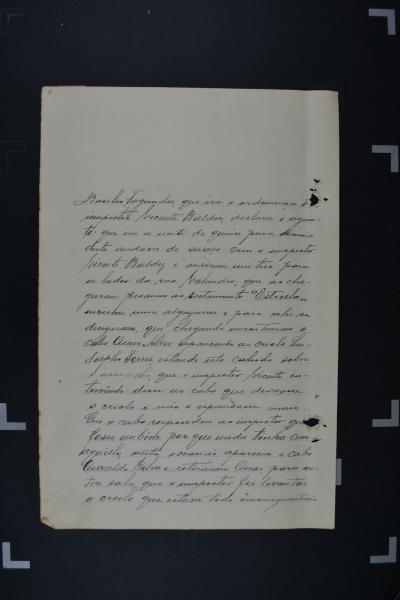 6
Basilio Fagundes, que éra o ordenança do
inspector Vicente Baldez, declara o seguin-
te: que em a noite de quinze para
deste andava de serviço com o inspector
Vicente Baldez e ouviram um tiro para
os lados da rua que ao che-
garem proximo ao "Estrella"
ouviram uma algazarra e para ahi se
dirigiram, que chegando encontraram o
cabo Oscar Alves espancando ao criolo
estando este cahido sobre
o que o inspector Vicente in-
tervindo disse ao cabo que deixasse
o criolo e não o espancasse mais.
Que o cabo respondeu ao inspector que
fosse embóra por que nada tinha com
aquillo, nesta occasião apareceu o cabo
Silva e retiraram Oscar para ou-
tra sala, que o inspector foi levantar
o criolo que estava todo